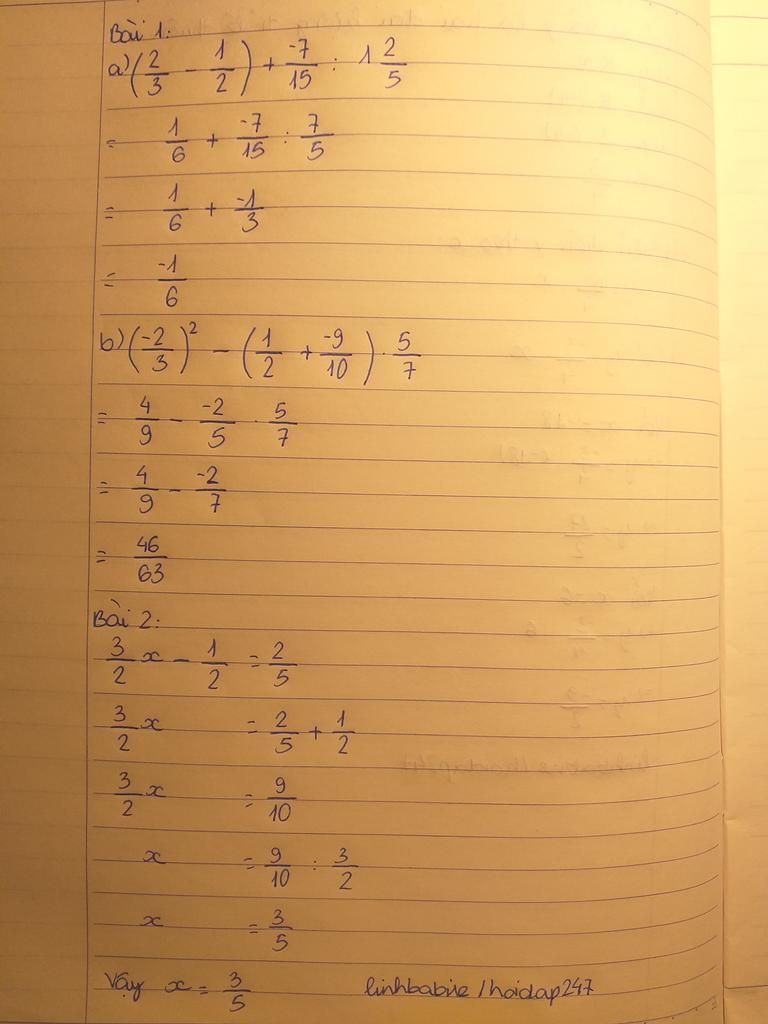 Bài 1:
a) (2/3 - 1/2) + -7/15 : 1 2/5
= 1/6 + -7/15 : 7/5
= 1/6 + -1/3
= -1/6
b) (-2/3)² - (1/2 + -9/10) . 5/7
= 4/9 - -2/5 . 5/7
= 4/9 - -2/7
= 46/63
Bài 2:
3/2 x - 1/2 = 2/5
3/2 x = 2/5 + 1/2
3/2 x = 9/10
x = 9/10 : 3/2
x = 3/5
Vậy x = 3/5 linhbabie/hoidap247